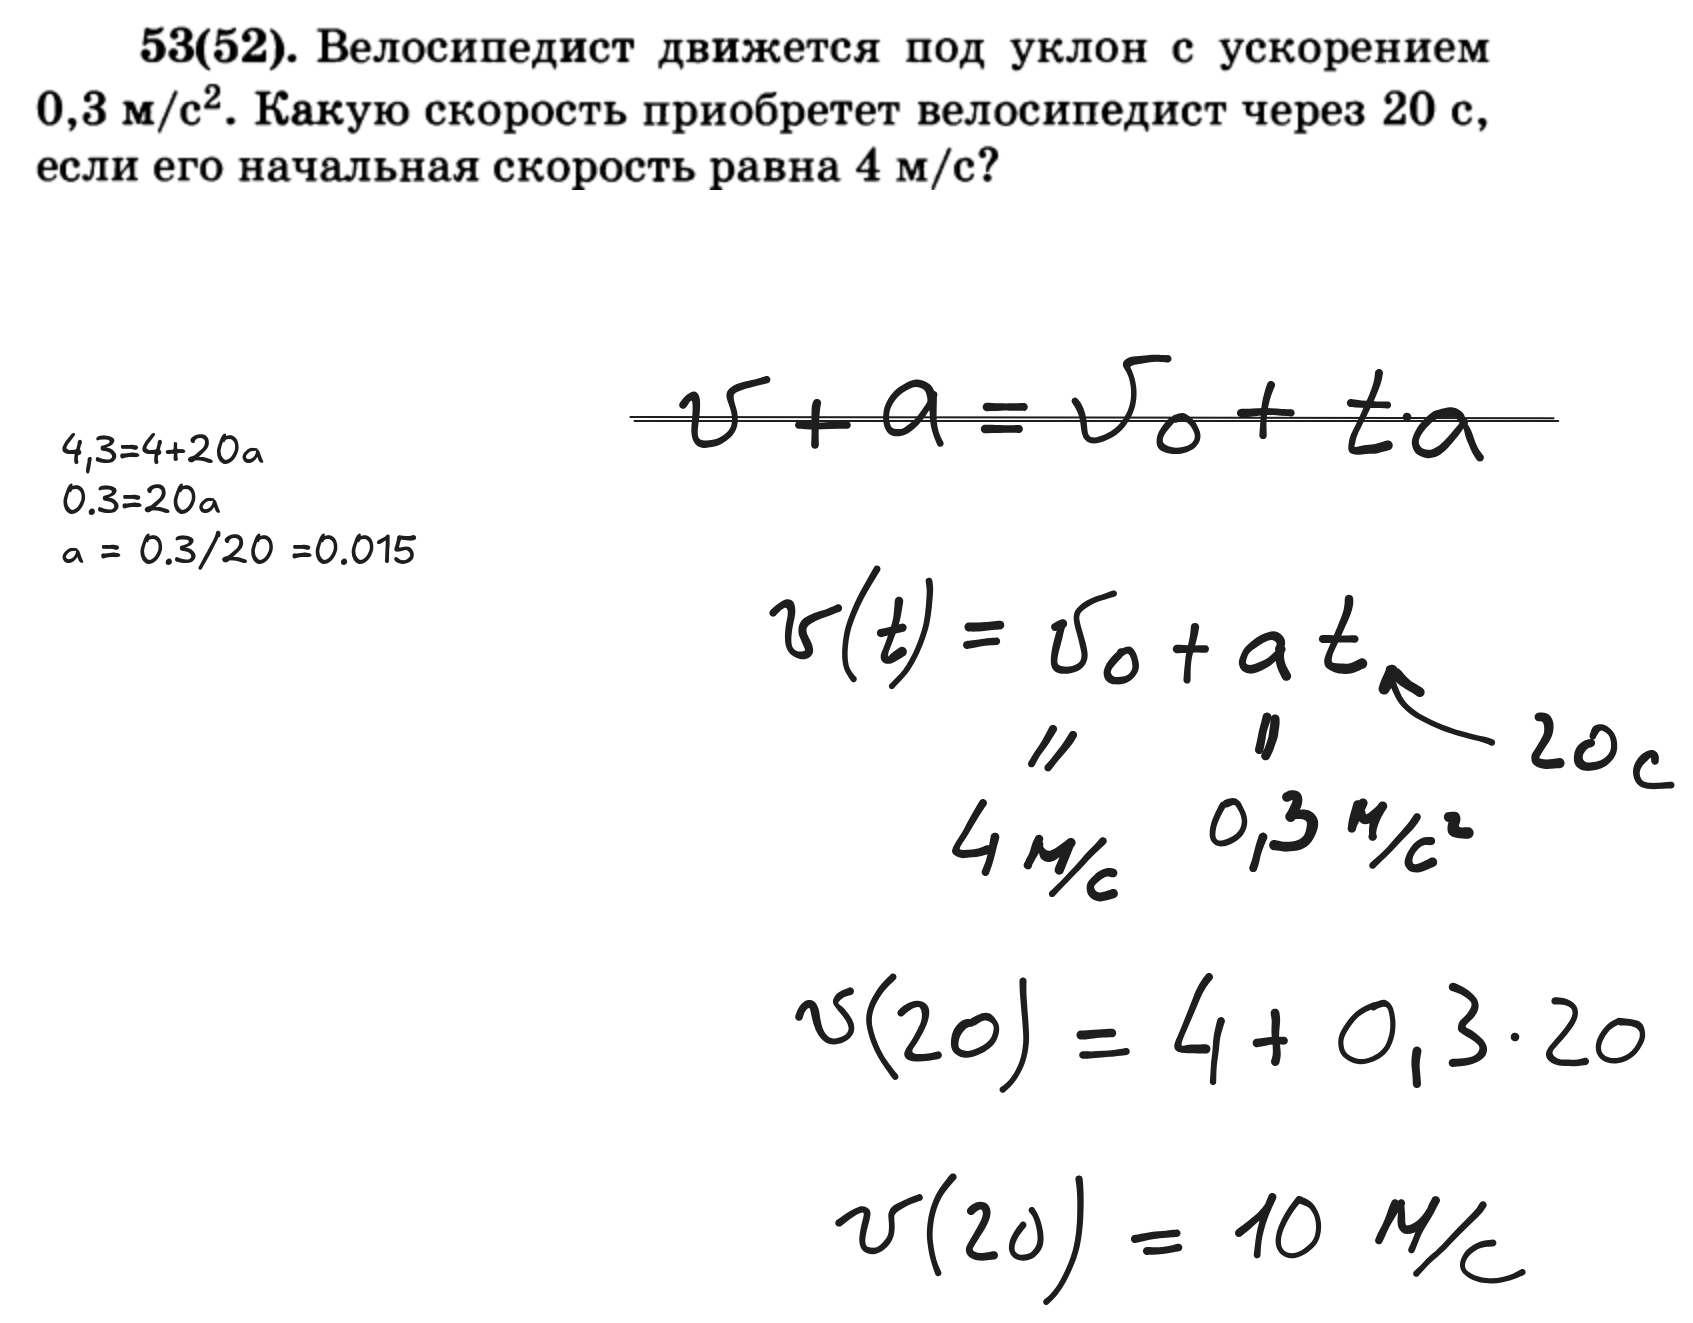 53(52). Велосипедист движется под уклон с ускорением
0,3 м/с². Какую скорость приобретет велосипедист через 20 с,
если его начальная скорость равна 4 м/с?
v + a = v₀ + t·a
4,3=4+20a
0.3=20a
a = 0.3/20 =0.015
v(t) = v₀ + at
20 с
" "
4 м/с 0,3 м/с²
v(20) = 4 + 0,3·20
v(20) = 10 м/с